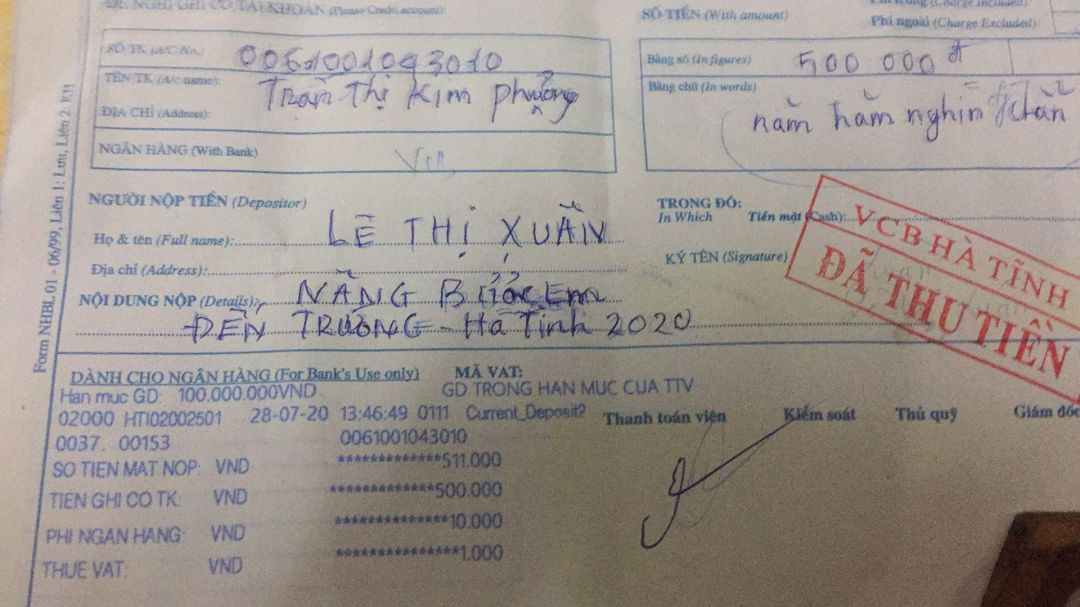 ĐỀ NGHỊ GHI CÓ TÀI KHOẢN (Please Credit account):
SỐ TK (A/C No.) 0061001043010
TÊN TK (A/c name): Trần Thị Kim Phượng
ĐỊA CHỈ (Address):
NGÂN HÀNG (With Bank) VCB
SỐ TIỀN (With amount)
Phí trong (Charge Included):
Phí ngoài (Charge Excluded):
Bằng số (In figures) 500 000 đ
Bằng chữ (In words)
năm trăm nghìn chẵn
NGƯỜI NỘP TIỀN (Depositor)
Họ & tên (Full name): LÊ THỊ XUÂN
Địa chỉ (Address):
NỘI DUNG NỘP (Details): NÂNG BƯỚC Em
ĐẾN TRƯỜNG - Hà Tĩnh 2020
TRONG ĐÓ:
In Which Tiền mặt (Cash):
KÝ TÊN (Signature)
VCB HÀ TĨNH
ĐÃ THU TIỀN
Form NHBL 01 - 06/99, Liên 1: Lưu, Liên 2: KH
DÀNH CHO NGÂN HÀNG (For Bank's Use only) MÃ VAT:
Han muc GD: 100.000.000VND GD TRONG HAN MUC CUA TTV
02000 HTI02002501 28-07-20 13:46:49 0111 Current_Deposit2
0037. 00153 0061001043010
SO TIEN MAT NOP: VND **************511.000
TIEN GHI CO TK: VND **************500.000
PHI NGAN HANG: VND ***************10.000
THUE VAT: VND ****************1.000
Thanh toán viên Kiểm soát Thủ quỹ Giám đốc